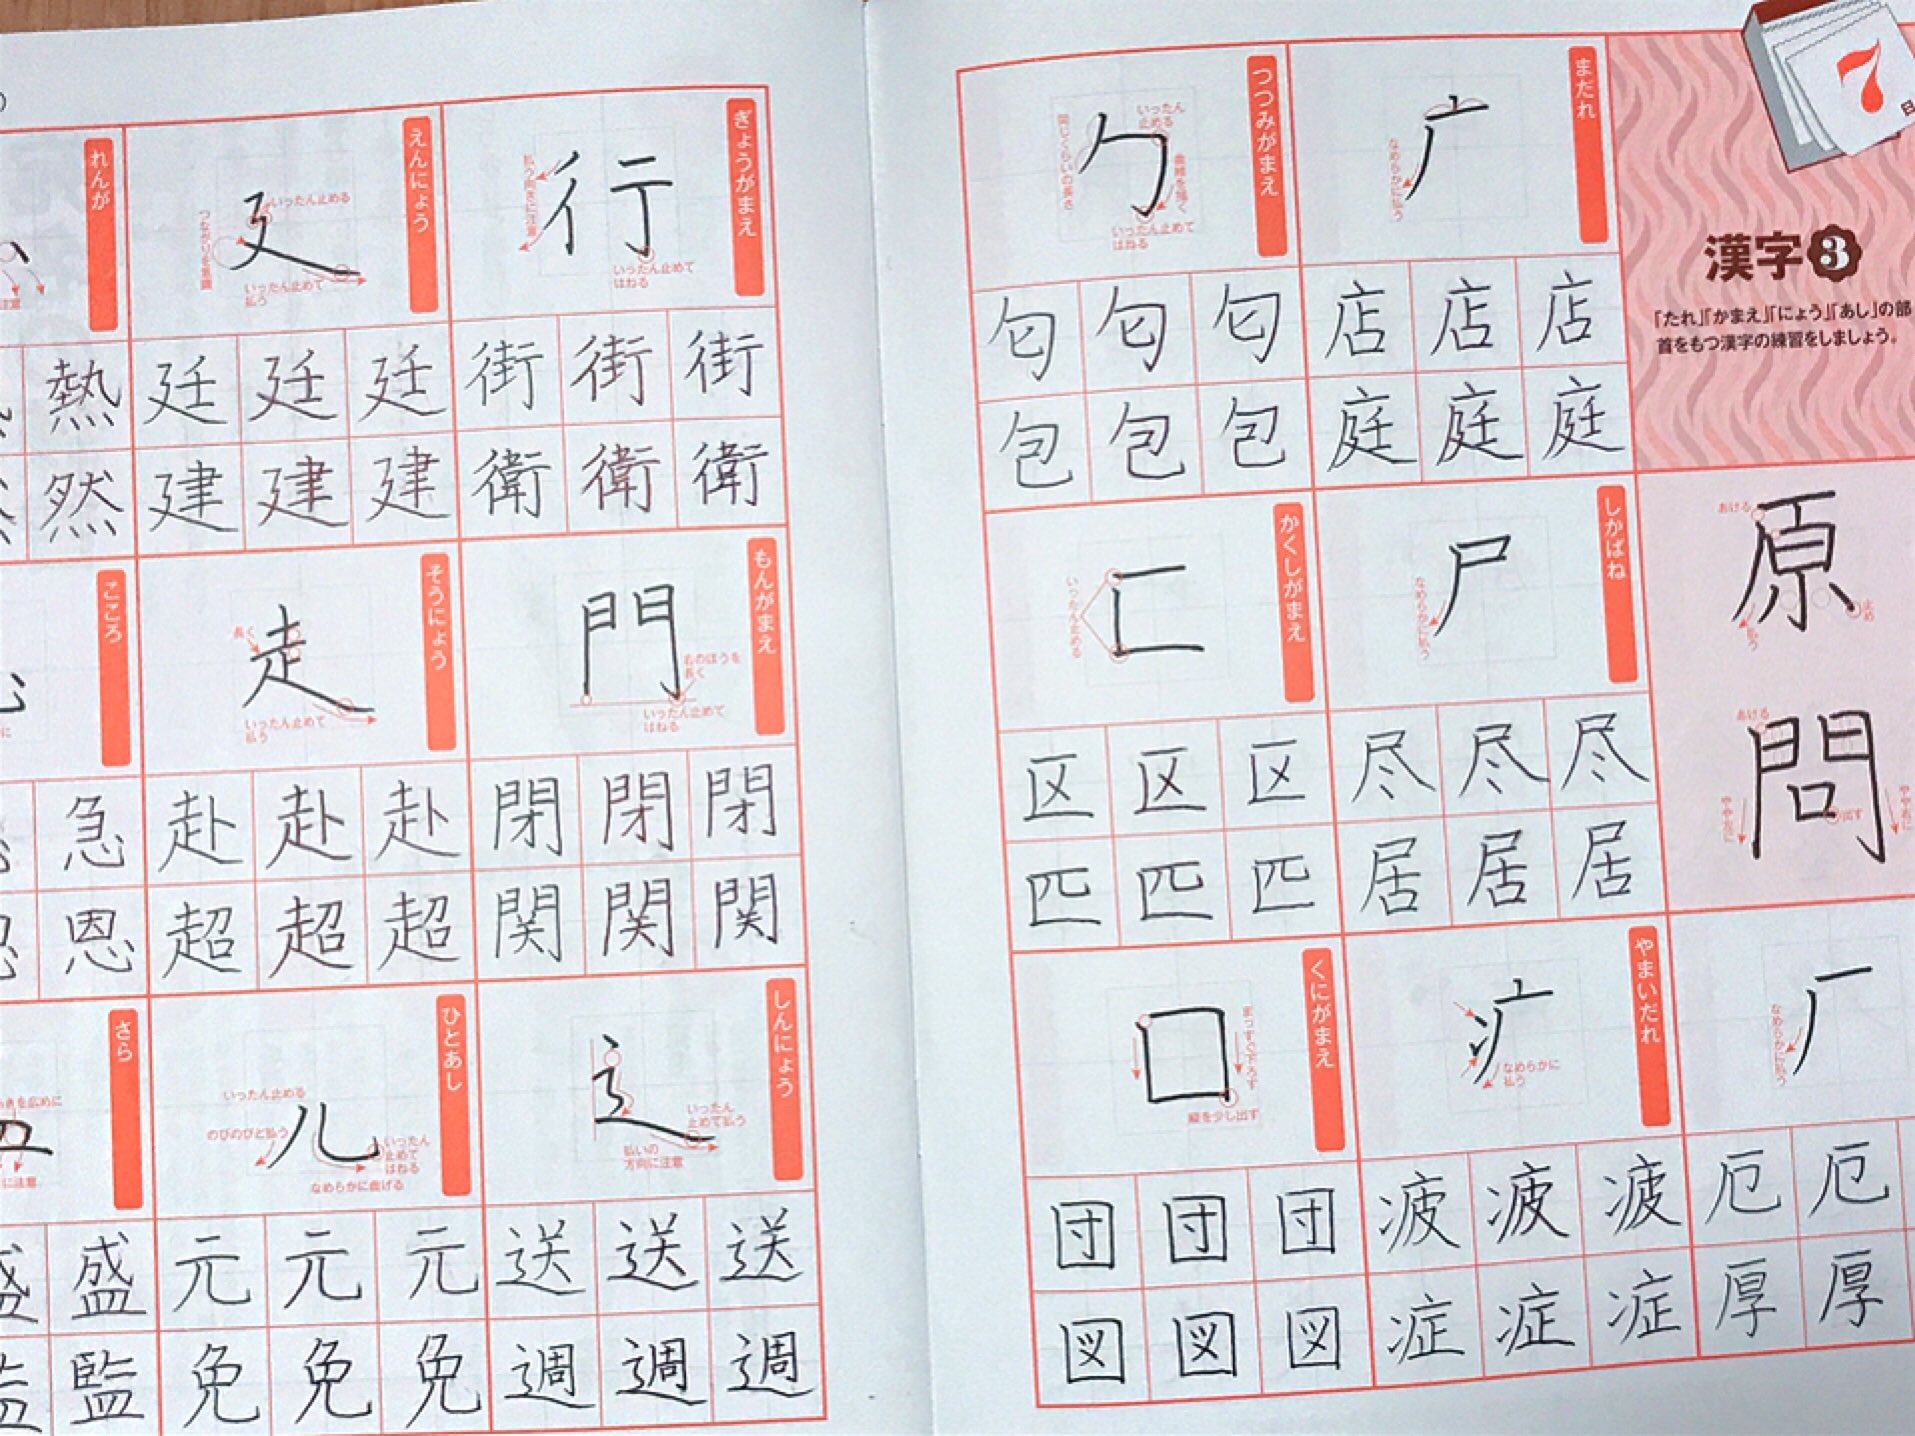 7日
漢字3
「たれ」「かまえ」「にょう」「あし」の部
首をもつ漢字の練習をしましょう。
原
あける
払う
止め
問
あける
やや左に
出す
やや右に
厂
なめらかに払う
厄 厄
厚 厚
まだれ
广
なめらかに払う
店 店 店
庭 庭 庭
しかばね
尸
なめらかに払う
尽 尽 尽
居 居 居
やまいだれ
疒
なめらかに
払う
疲 疲 疲
症 症 症
つつみがまえ
勹
いったん
止める
同じくらいの長さ
曲線を描く
いったん止めて
はねる
匂 匂 匂
包 包 包
かくしがまえ
匸
いったん止める
区 区 区
匹 匹 匹
くにがまえ
囗
まっすぐ下ろす
縦を少し出す
団 団 団
図 図 図
ぎょうがまえ
行
払う向きに注意
いったん止めて
はねる
街 街 街
衛 衛 衛
もんがまえ
門
右のほうを
長く
いったん止めて
はねる
閉 閉 閉
関 関 関
しんにょう
辶
いったん
止めて払う
払いの
方向に注意
送 送 送
週 週 週
えんにょう
廴
いったん止める
つながりを意識
いったん止めて
払う
廷 廷 廷
建 建 建
そうにょう
走
長く
いったん止めて
払う
赴 赴 赴
超 超 超
ひとあし
儿
いったん止める
のびのびと払う
いったん
止めて
はねる
なめらかに曲げる
元 元 元
免 免 免
れんが
注意
熱
然
こころ
に
急
恩
さら
きを広めに
に注意
盛 盛
監 監